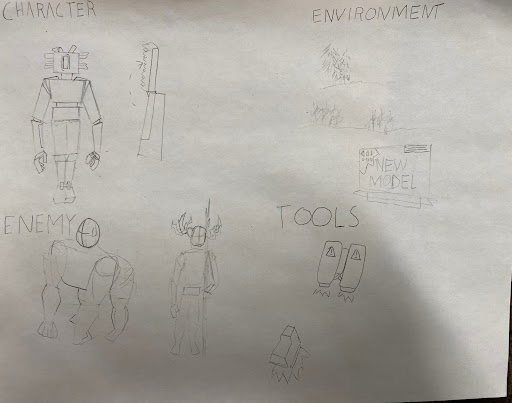 CHARACTER
ENVIRONMENT
NEW
MODEL
ENEMY
TOOLS